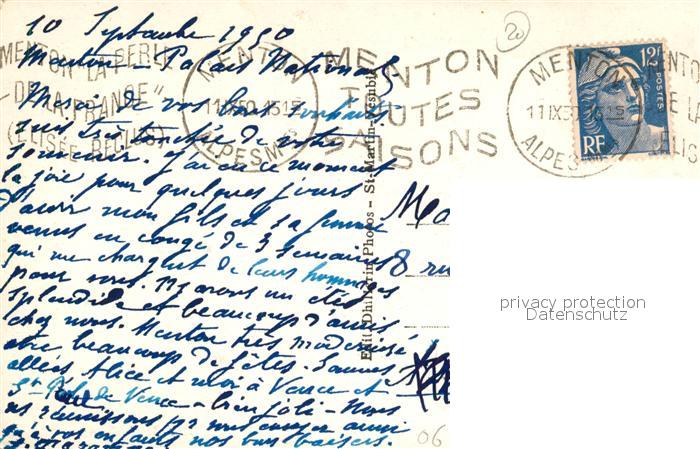 10 Septembre 1950
Menton - Palais National
Merci de vos bons
suis très touchée de votre
souvenir. J'ai en ce moment
la joie pour quelques jours
d'avoir mon fils et sa femme
venus en congé de 3 semaines
qui me chargent de leurs hommages
pour vous. Ns avons un été
splendide et beaucoup d'amis
chez nous. Menton très modernisé
beaucoup de fêtes. Sommes
allées Alice et moi à Vence et
St Paul de Vence - bien joli - Nous
ns réunissons pr vous envoyer ainsi
qu'à vos enfants nos bons baisers.
20
MENTON LA PERLE
DE LA FRANCE"
(ELISÉE RECLUS)
MENTON
11 IX 50 1515
ALPES Mmes
MENTON
TOUTES
SAISONS
MENTON
11 IX 50 1515
ALPES
MENTON
DE LA
ELIS
12F
POSTES
RF
Edit. Photos - St-Martin-Vésubie
8 ru
privacy protection
Datenschutz
06